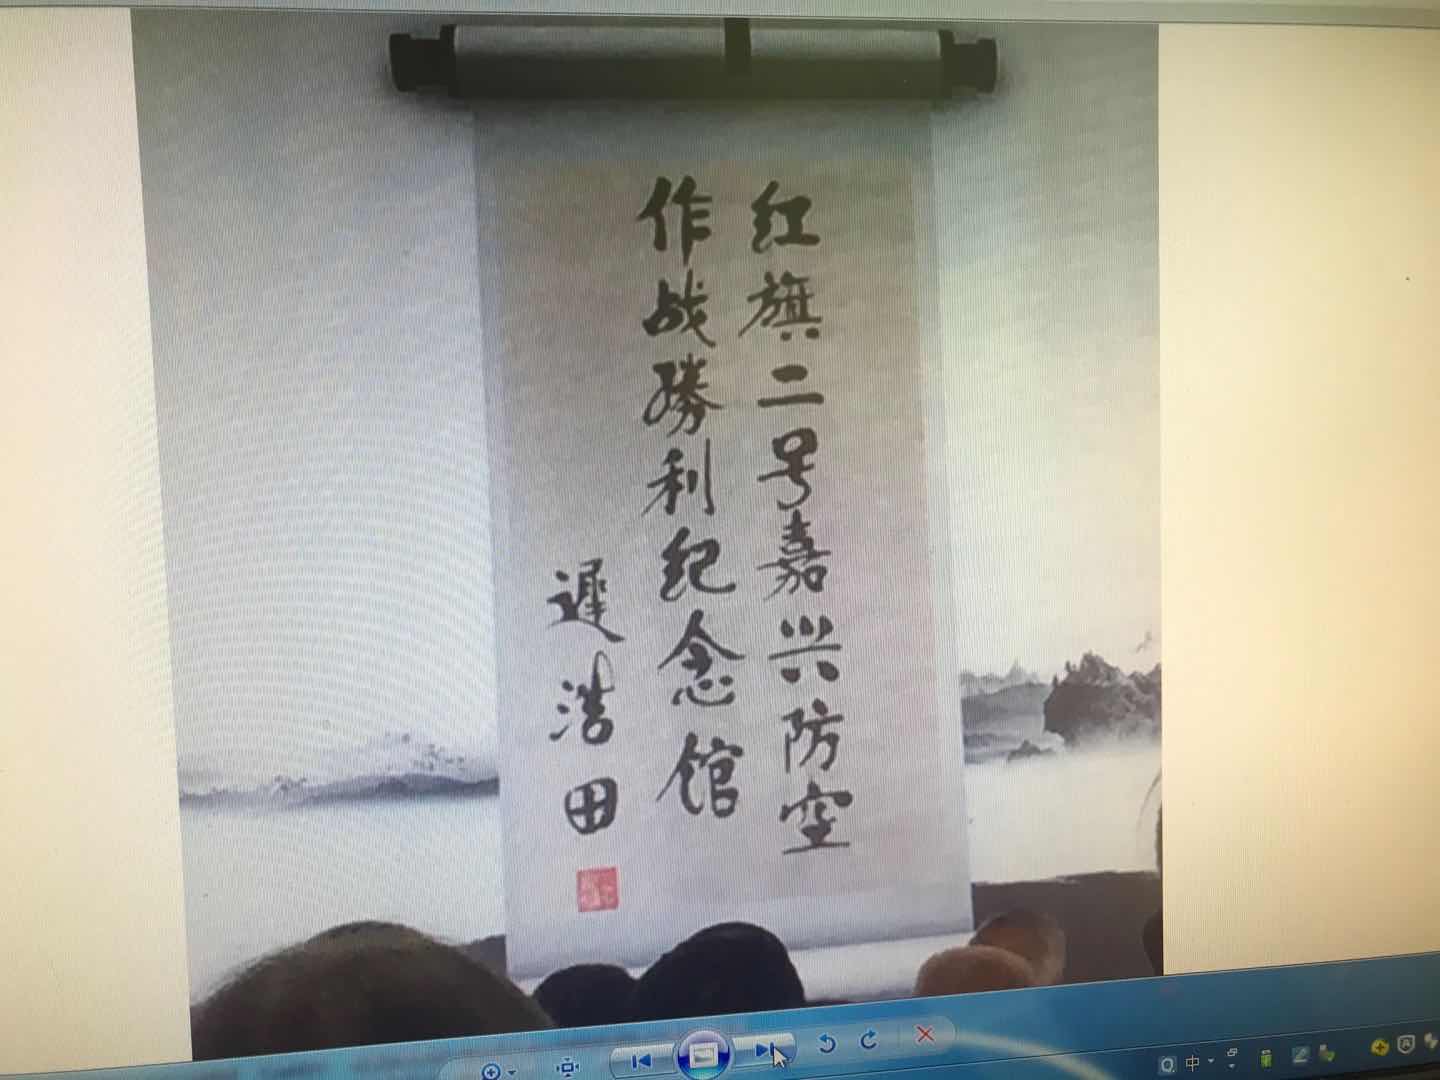 红旗二号嘉兴防空
作战勝利纪念馆
遲浩田
中